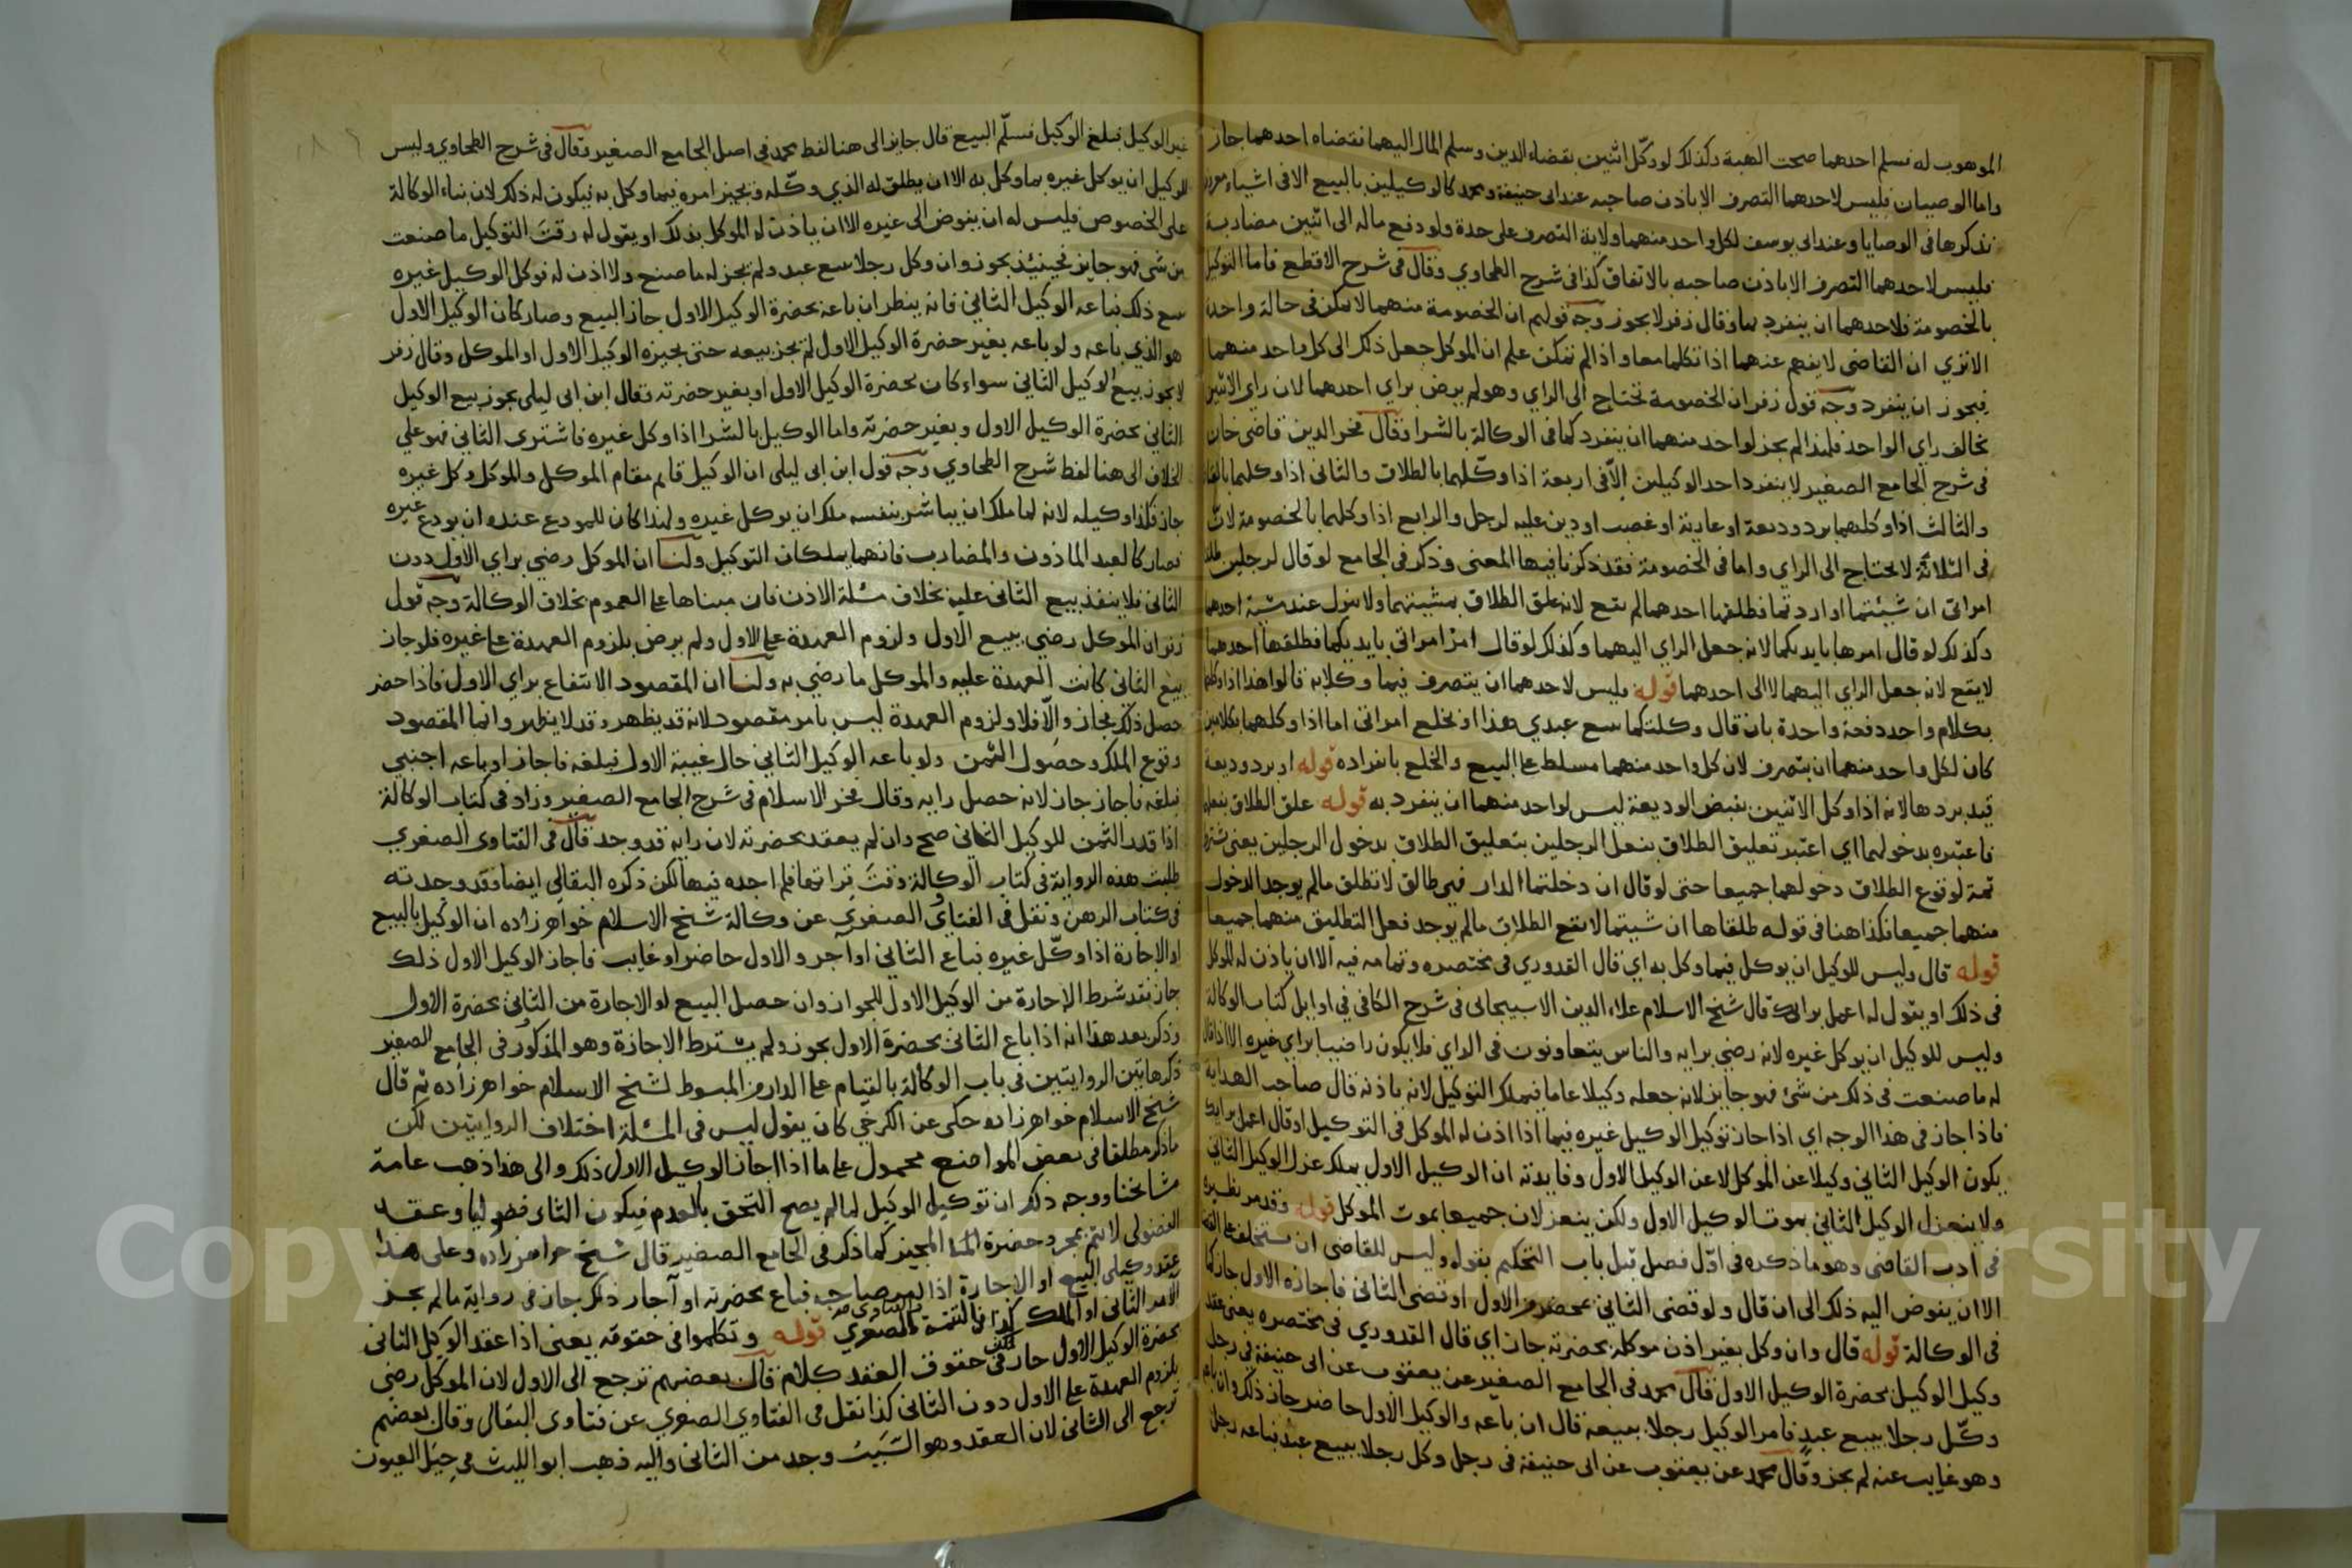 الموهوب له فسلم احدهما صحت الهبة وكذلك لو وكّل اثنين بقضاء الدين وسلم المال اليهما فقضاه احدهما جاز
واما الوصيان فليس لاحدهما التصرف الا باذن صاحبه عند ابى حنيفة ومحمد كالوكيلين بالبيع الا فى اشياء
نذكرها فى الوصايا وعند ابى يوسف لكل واحد منهما ولاية التصرف على حدة ولو دفع ماله الى اثنين مضاربة
فليس لاحدهما التصرف الا باذن صاحبه بالاتفاق كذا فى شرح الطحاوي وقال فى شرح الاقطع فاما التوكيل
بالخصومة فلاحدهما ان ينفرد بها وقال زفر لا يجوز وجه قولهم ان الخصومة منهما لا تمكن فى حالة واحدة
الا تري ان القاضى لا يفهم عنهما اذا تكلما معا واذا لم تمكن علم ان الموكل جعل ذلك الى كل واحد منهما
فيجوز ان ينفرد وجه قول زفر ان الخصومة تحتاج الى الراي وهو لم يرض براي احدهما لان راي الاثنين
يخالف راي الواحد فلهذا لم يجز لواحد منهما ان ينفرد كما فى الوكالة بالشرا وقال فخر الدين قاضى خان
فى شرح الجامع الصغير لا ينفرد احد الوكيلين الّا فى اربعة اذا وكّلهما بالطلاق والثانى اذا وكلهما
والثالث اذا وكلهما برد وديعة او عارية او غصب او دين عليه لرجل والرابع اذا وكلهما بالخصومة لان
فى الثلاثة لا يحتاج الى الراي واما فى الخصومة فقد ذكرنا فيها المعنى وذكر فى الجامع لو قال لرجلين طلقا
امراتى ان شئتما او اردتما فطلقها احدهما لم يقع لانه علق الطلاق بمشيتهما ولا ينزل عند مشية احدهما
وكذلك لو قال امرها بايديكما لانه جعل الراي اليهما وكذلك لو قال امر امراتى بايديكما فطلقها احدهما
لا يقع لانه جعل الراي اليهما لا الى احدهما قوله فليس لاحدهما ان يتصرف فيما وكلا به قالوا هذا اذا وكلهما
بكلام واحد دفعة واحدة بان قال وكلتكما ببيع عبدي هذا او بخلع امراتى اما اذا وكلهما بكلامين
كان لكل واحد منهما ان يتصرف لان كل واحد منهما مسلط على البيع والخلع بانفراده قوله او برد وديعة
قيد بردها لانه اذا وكل الاثنين بقبض الوديعة ليس لواحد منهما ان ينفرد به قوله علق الطلاق بفعلهما
فاعتبره بدخولهما اي اعتبر تعليق الطلاق بفعل الرجلين بتعليق الطلاق بدخول الرجلين يعنى
ثمة لوقوع الطلاق دخولهما جميعا حتى لو قال ان دخلتما الدار فهى طالق لا تطلق مالم يوجد الدخول
منهما جميعا فكذا هنا فى قوله طلقاها ان شيتما لا يقع الطلاق مالم يوجد فعل التطليق منهما جميعا
قوله قال وليس للوكيل ان يوكل فيما وكل به اي قال القدوري فى مختصره وتمامه فيه الا ان ياذن له الموكل
فى ذلك او يقول له اعمل برايك قال شيخ الاسلام علاء الدين الاسبيجابى فى شرح الكافى فى اوايل كتاب الوكالة
وليس للوكيل ان يوكل غيره لانه رضي برايه والناس يتفاوتون فى الراي فلا يكون راضيا براي غيره الا اذا قال
له ما صنعت فى ذلك من شئ فهو جايز لانه جعله وكيلا عاما فيملك التوكيل لانه باذنه قال صاحب الهداية
فاذا جاز فى هذا الوجه اي اذا جاز توكيل الوكيل غيره فيما اذا اذن له الموكل فى التوكيل او قال اعمل برايك
يكون الوكيل الثانى وكيلا عن الموكل لا عن الوكيل الاول وفايدته ان الوكيل الاول يملك عزل الوكيل الثانى
ولا ينعزل الوكيل الثانى بموت الوكيل الاول ولكن ينعزلان جميعا بموت الموكل قوله وقد مر نظيره
فى ادب القاضى وهو ما ذكره فى اوّل فصل قبل باب التحكيم بقوله وليس للقاضى ان يستخلف على القضا
الا ان يفوض اليه ذلك الى ان قال ولو قضى الثانى بمحضر من الاول او قضى الثانى فاجازه الاول جاز كما
فى الوكالة قوله قال وان وكل بغير اذن موكله بحضرته جاز اي قال القدوري فى مختصره يعنى عقد
وكيل الوكيل بحضرة الوكيل الاول قال محمد فى الجامع الصغير عن يعقوب عن ابى حنيفة فى رجل
وكّل رجلا ببيع عبد فامر الوكيل رجلا ببيعه قال ان باعه والوكيل الاول حاضر جاز ذلك وان باعه
وهو غايب عنه لم يجز وقال محمد عن يعقوب عن ابى حنيفة فى رجل وكل رجلا ببيع عبد فباعه رجل
غير الوكيل فبلغ الوكيل فسلّم البيع قال جايز الى هنا لفظ محمد فى اصل الجامع الصغير وقال فى شرح الطحاوي وليس
للوكيل ان يوكل غيره بما وكل به الا ان يطلق له الذي وكّله ويجيز امره فيما وكل به فيكون له ذلك لان بناء الوكالة
على الخصوص فليس له ان يفوض الى غيره الا ان ياذن له الموكل بذلك او يقول له وقت التوكيل ما صنعت
من شى فهو جايز فحينئذ يجوز وان وكل رجلا ببيع عبد ولم يجز له ما صنع ولا اذن له فوكل الوكيل غيره
ببيع ذلك فباعه الوكيل الثانى فانه ينظر ان باعه بحضرة الوكيل الاول جاز البيع وصار كان الوكيل الاول
هو الذي باعه ولو باعه بغير حضرة الوكيل الاول لم يجز بيعه حتى يجيزه الوكيل الاول او الموكل وقال زفر
لا يجوز بيع الوكيل الثانى سواء كان بحضرة الوكيل الاول او بغير حضرته وقال ابن ابى ليلى يجوز بيع الوكيل
الثانى بحضرة الوكيل الاول وبغير حضرته واما الوكيل بالشرا اذا وكل غيره فاشترى الثانى فهو على
الخلاف الى هنا لفظ شرح الطحاوي وجه قول ابن ابى ليلى ان الوكيل قايم مقام الموكل والموكل لو وكل غيره
جاز فكذا وكيله لانه لما ملك ان يباشر بنفسه ملك ان يوكل غيره ولهذا كان للمودع عنده ان يودع غيره
فصار كالعبد الماذون والمضارب فانهما يملكان التوكيل ولنا ان الموكل رضي براي الاول دون
الثانى فلا ينفذ بيع الثانى عليه بخلاف مسئلة الاذن فان مبناها على العموم بخلاف الوكالة وجه قول
زفر ان الموكل رضي ببيع الاول ولزوم العهدة على الاول ولم يرض بلزوم العهدة على غيره فلو جاز
بيع الثانى كانت العهدة عليه والموكل ما رضي به ولنا ان المقصود الانتفاع براي الاول فاذا حضر
حصل ذلك فجاز والّا فلا ولزوم العهدة ليس بامر مقصود لانه قد يظهر وقد لا يظهر وانما المقصود
وقوع الملك وحصول الثمن ولو باعه الوكيل الثانى حال غيبة الاول فبلغه فاجاز او باعه اجنبي
فبلغه فاجاز جاز لانه حصل رايه وقال فخر الاسلام فى شرح الجامع الصغير وزاد فى كتاب الوكالة
اذا قدر الثمن للوكيل الثانى صح وان لم يعقد بحضرته لان رايه قد وجد قال فى الفتاوى الصغري
طلبت هذه الرواية فى كتاب الوكالة وقت قراتها فلم اجده فيها لكن ذكره البقالى ايضا وقد وجدته
فى كتاب الرهن ونقل فى الفتاوى الصغرى عن وكالة شيخ الاسلام خواهر زاده ان الوكيل بالبيع
او الاجارة اذا وكّل غيره فباع الثانى او آجر والاول حاضر او غايب فاجاز الوكيل الاول ذلك
جاز فقد شرط الاجازة من الوكيل الاول للجواز وان حصل البيع او الاجارة من الثانى بحضرة الاول
وذكر بعد هذا انه اذا باع الثانى بحضرة الاول يجوز ولم يشترط الاجازة وهو المذكور فى الجامع الصغير
ذكر هاتين الروايتين فى باب الوكالة بالقيام على الدار من المبسوط لشيخ الاسلام خواهر زاده ثم قال
شيخ الاسلام خواهر زاده حكى عن الكرخي كان يقول ليس فى المسئلة اختلاف الروايتين لكن
ما ذكر مطلقا فى بعض المواضع محمول على ما اذا اجاز الوكيل الاول ذلك والى هذا ذهب عامة
مشايخنا ووجه ذلك ان توكيل الوكيل لما لم يصح التحق بالعدم فيكون الثانى فضوليا وعقد
الفضولى لا يتم بمجرد حضرة المجيز كما ذكر فى الجامع الصغير قال شيخ خواهر زاده وعلى هذا
عقد وكيلى البيع او الاجارة اذا امر صاحبه فباع بحضرته او آجار ذلك جاز فى رواية مالم يجز
الامر الثانى او الملك كذا فى التتمة والفتاوى الصغري قوله وتكلموا فى حقوقه يعنى اذا عقد الوكيل الثانى
بحضرة الوكيل الاول جاز لكن فى حقوق العقد كلام قال بعضهم ترجع الى الاول لان الموكل رضي
بلزوم العهدة على الاول دون الثانى كذا نقل فى الفتاوي الصغري عن فتاوى البقالى وقال بعضهم
ترجع الى الثانى لان العقد وهو السَّبَب وجد من الثانى واليه ذهب ابو الليث فى حِيَل العيون